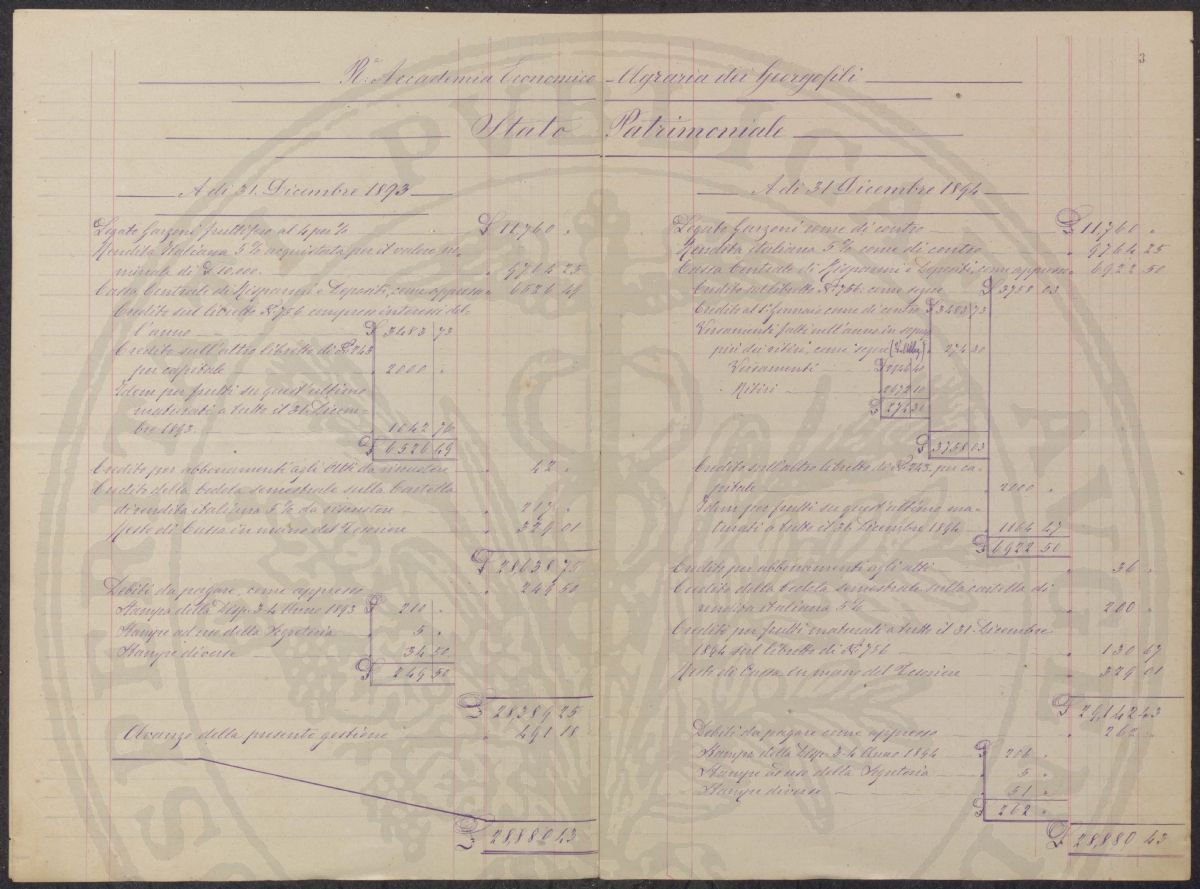 3
R. Accademia Economico-Agraria dei Georgofili
Stato Patrimoniale
A dì 31. Dicembre 1893
Legato Garzoni fruttifero al 4 per % £ 11,760 "
Rendita Italiana 5% acquistata per il valore no-
minale di £ 10.000 " 9764 25
Cassa Centrale di Risparmi e Depositi, come appresso " 6526 49
Credito sul libretto N.° 756 compresi interessi del-
l'anno £ 3483 73
Credito sull'altro libretto di N.° 243
per capitale " 2000 "
Idem per frutti su quest'ultimo
maturati a tutto il 31 Dicem-
bre 1893 " 1042 76
£ 6526 49
Credito per abbonamenti agli Atti da riscuotere " 42 "
Credito della Cedola semestrale sulla Cartella
di rendita italiana 5% da riscuotere " 217 "
Resto di Cassa in mano del Tesoriere " 329 01
£ 28638 75
Debiti da pagare, come appresso " 249 50
Stampa della Disp. 3-4 Anno 1893 £ 210 "
Stampe ad uso della Segreteria " 5 "
Stampe diverse " 34 50
£ 249 50
£ 28,389 25
Avanzo della presente gestione " 491 18
£ 28,880 43
A dì 31 Dicembre 1894
Legato Garzoni come di contro £ 11,760 "
Rendita italiana 5% come di contro " 9764 25
Cassa Centrale di Risparmi e Depositi, come appresso " 6922 50
Credito sul libretto N.° 756. come segue £ 3758 03
Credito al 1° Gennaio come di contro £ 3483 73
Versamenti fatti nell'anno in sopra
più dei ritiri, come segue " 274 30
Versamenti £ 2946 40
Ritiri " 2672 10
£ 274 30
£ 3758 03
Credito sull'altro libretto di N.° 243. per ca-
pitale " 2000 "
Idem per frutti su quest'ultimo ma-
turati a tutto il 31 Dicembre 1894 " 1164 47
£ 6922 50
Credito per abbonamenti agli atti " 36 "
Credito della Cedola semestrale sulla cartella di
rendita italiana 5% " 200 "
Credito per frutti maturati a tutto il 31. Dicembre
1894 sul libretto di N.° 756 " 130 67
Resto di Cassa in mano del Tesoriere " 329 01
£ 29,142 43
Debiti da pagare come appresso " 262 "
Stampa della Disp. 3-4 Anno 1894 £ 206 "
Stampe ad uso della Segreteria " 5 "
Stampe diverse " 51 "
£ 262 "
£ 28,880 43